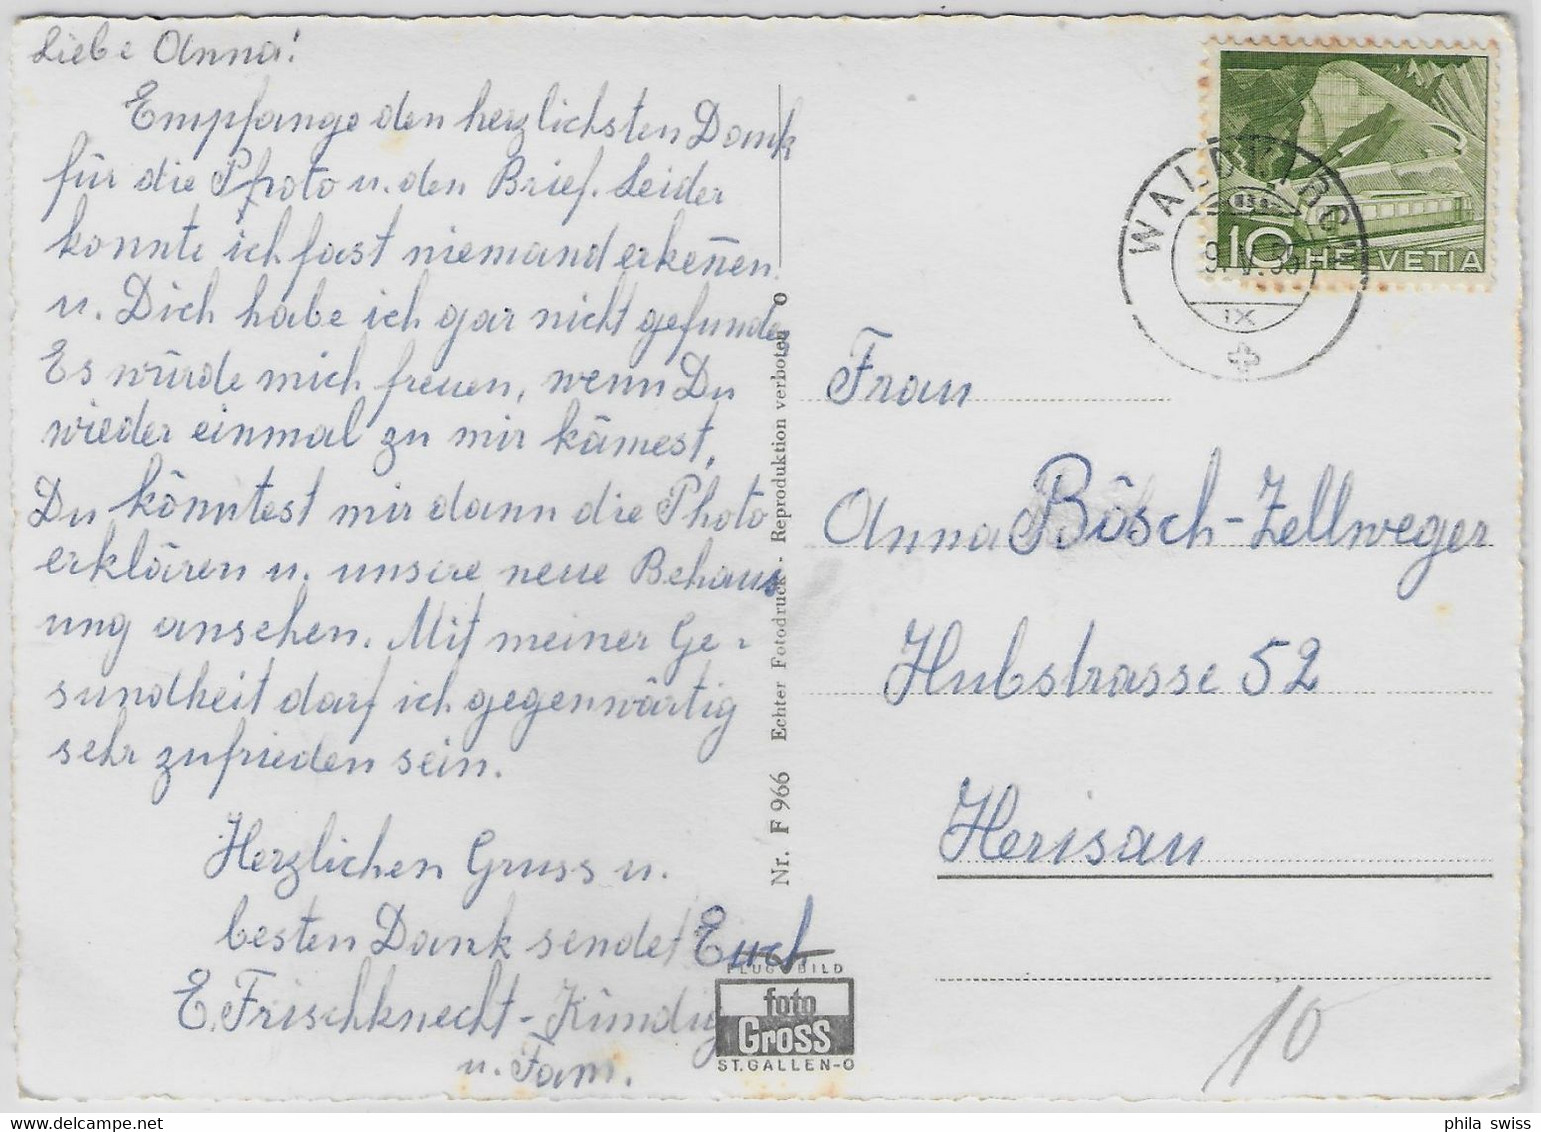 Liebe Anna!
Empfange den herzlichsten Dank
für die Photo u. den Brief. Leider
konnte ich fast niemand erkeñen
u. Dich habe ich gar nicht gefunden
Es würde mich freuen, wenn Du
wieder einmal zu mir kämest,
Du könntest mir dann die Photo
erklären u. unsere neue Behaus
ung ansehen. Mit meiner Ge-
sundheit darf ich gegenwärtig
sehr zufrieden sein.
Herzlichen Gruss u.
besten Dank sendet Euch
E. Frischknecht-Kündig
u. Fam.
Nr. F 966 Echter Fotodruck - Reproduktion verboten O
FLUGBILD
foto
Gross
ST. GALLEN-O
10 HELVETIA
WALDKIRCH
9. V.
IX
Frau
Anna Bösch-Zellweger
Hubstrasse 52
Herisau
10
phila swiss